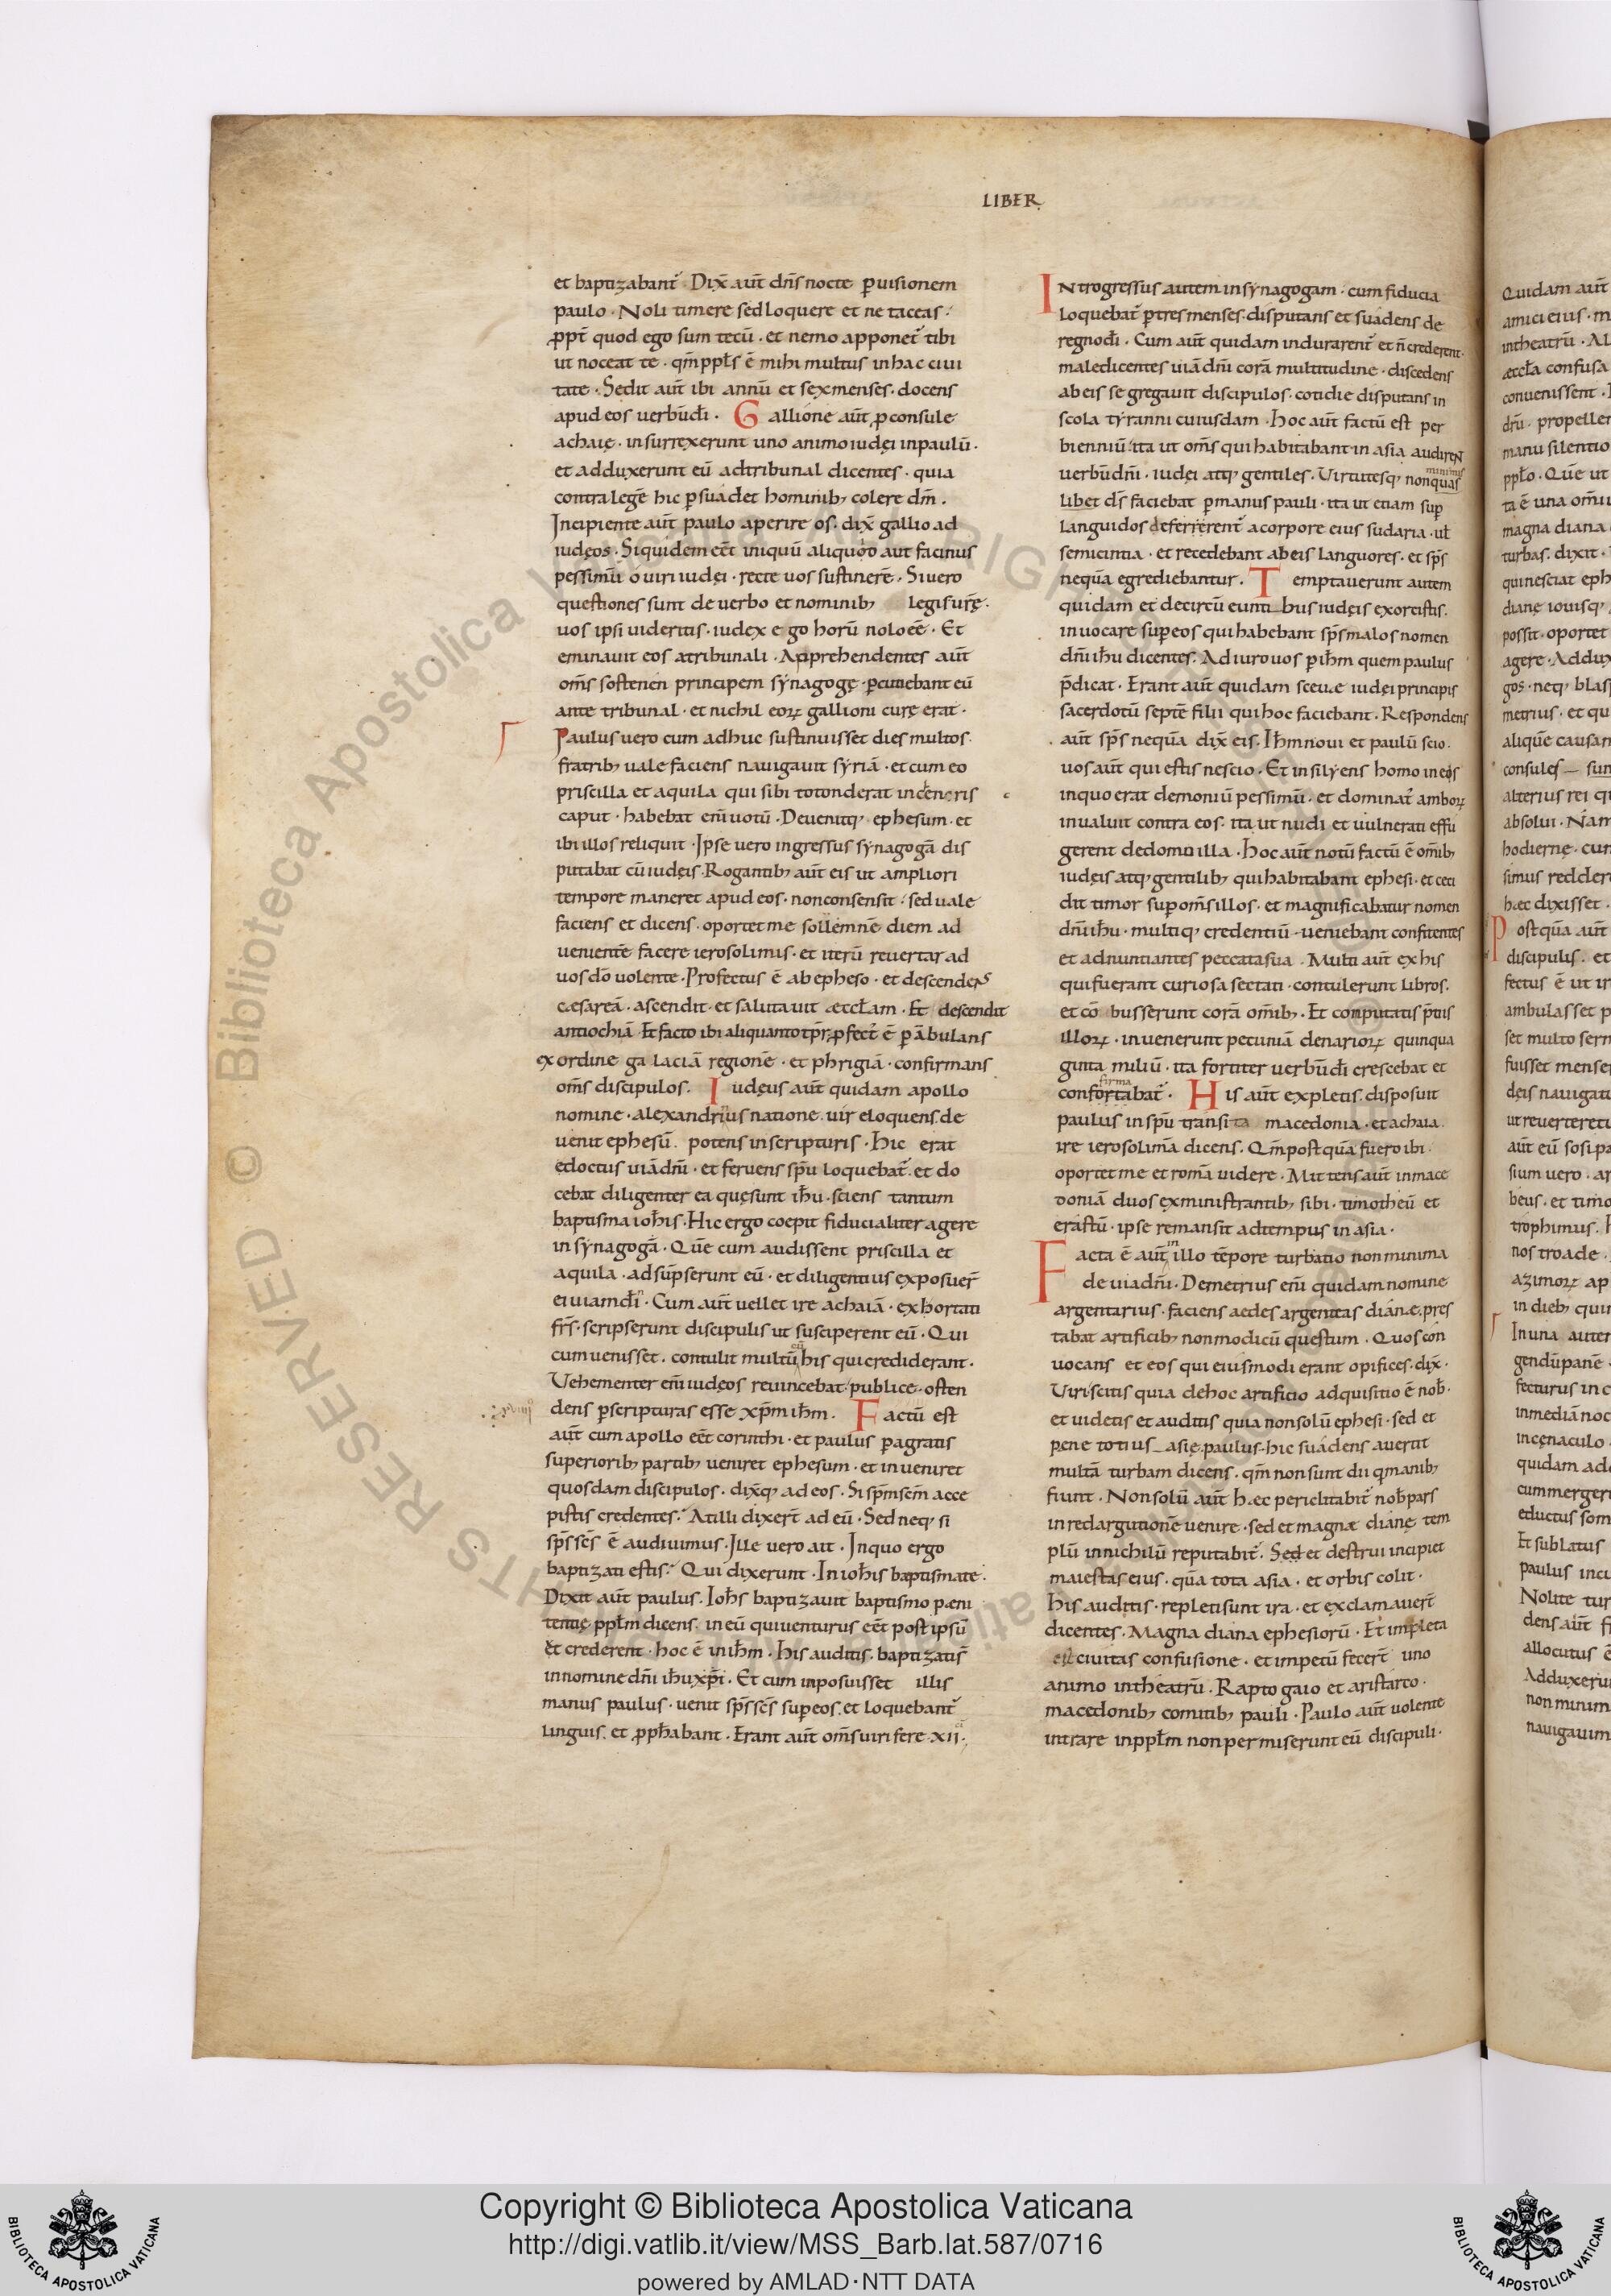 LIBER
et baptizabant᷑. Dix̄ aūt dn̄s nocte ꝑ uisionem
paulo. Noli timere sed loquere et ne taceas.
ꝓpt̄ quod ego sum tecū. et nemo apponet᷑ tibi
ut noceat te. qm̄ ppl̄s ē mihi multus in hac ciui
tate. Sedit aūt ibi annū et sex menses. docens
apud eos uerbū dī. Gallione aūt ꝓconsule
achaię. insurrexerunt uno animo iudęi in paulū.
et adduxerunt eū ad tribunal dicentes. quia
contra legē hic ꝑsuadet hominib; colere dm̄.
Incipiente aūt paulo aperire os. dix̄ gallio ad
iudęos. Si quidem eēt iniquū aliquod aut facinus
pessimū o uiri iudęi. recte uos sustinerē. Si uero
questiones sunt de uerbo et nominib; legis urę̄.
uos ipsi uideritis. iudex ego horū nolo eē. Et
eminauit eos a tribunali. Apprehendentes aūt
om̄s sostenen principem sýnagogę. ꝑcutiebant eū
ante tribunal. et nichil eoꝝ gallioni curę erat.
Paulus uero cum adhuc sustinuisset dies multos.
fratrib; uale faciens nauigauit sýriā. et cum eo
priscilla et aquila qui sibi totonderat in cencris
caput. habebat enī uotū. Deuenitq; ephesum. et
ibi illos reliquit. Ipse uero ingressus sýnagogā dis
putabat cū iudęis. Rogantib; aūt eis ut ampliori
tempore maneret apud eos. non consensit. sed uale
faciens et dicens. oportet me sollemnē diem ad
uenientē facere ierosolimis. et iterū reuertar ad
uos dō uolente. Profectus ē ab epheso. et descendens
cęsareā. ascendit. et salutauit æccl̄am. Et descendit
antiochiā. Et facto ibi aliquanto tpr̄e ꝓfect᷑ ē ꝑābulans
ex ordine galaciam regionē. et phrigiā. confirmans
om̄s discipulos. Iudęus aūt quidam apollo
nomine. alexandrius natione. uir eloquens. de
uenit ephesū. potens in scripturis. Hic erat
edoctus uiā dn̄i. et feruens sp̄u loquebat᷑. et do
cebat diligenter ea quę sunt ih̄u. sciens tantum
baptisma ioh̄is. Hic ergo coepit fiducialiter agere
in sýnagogā. Quē cum audissent priscilla et
aquila. adsūpserunt eū. et diligentius exposuer̄
ei uiam dn̄i. Cum aūt uellet ire achaiā. exhortati
fr̄s. scripserunt discipulis ut susciperent eū. Qui
cum uenisset. contulit multū his qui crediderant.
Vehementer enī iudęos reuincebat publice. osten
dens ꝑ scripturas esse xp̄m ih̄m. Factū est
aūt cum apollo eēt corinthi. et paulus ꝑagratis
superiorib; partib; ueniret ephesum. et inueniret
quosdam discipulos. dix̄q; ad eos. Si sp̄m sc̄m acce
pistis credentes. At illi dixer̄t ad eū. Sed neq; si
sp̄s sc̄s ē audiuimus. Ille uero ait. In quo ergo
baptizati estis. Qui dixerunt. In ioh̄is baptismate.
Dixit aūt paulus. Ioh̄s baptizauit baptismo pæni
tentię ppl̄m dicens. in eū qui uenturus eēt post ipsū
ut crederent. hoc ē in ih̄m. His auditis. baptizati s̄
in nomine dn̄i ih̄u xp̄i. Et cum inposuisset illis
manus paulus. uenit sp̄s sc̄s sup eos. et loquebant᷑
linguis. et ꝓph̄abant. Erant aūt om̄s uiri fere. xii.
INtrogressus autem in sýnagogam. cum fiducia
loquebat᷑ ꝑ tres menses. disputans et suadens de
regno dī. Cum aūt quidam indurarent᷑ et n̄ crederent.
maledicentes uiā dn̄i corā multitudine. discedens
ab eis segregauit discipulos. cotidie disputans in
scola týranni cuiusdam. Hoc aūt factū est per
bienniū. ita ut om̄s qui habitabant in asia audireNt
uerbū dn̄i. iudęi atq; gentiles. Virtutesq; non quas
minimas
libet ds̄ faciebat ꝑ manus pauli. ita ut etiam sup
languidos deferrerent᷑ a corpore eius sudaria. ul̄
semicintia. et recedebant ab eis languores. et sp̄s
nequā egrediebantur. Temptauerunt autem
quidam et de circū euntibus iudęis exorcistis.
inuocare sup eos qui habebant sp̄s malos nomen
dn̄i ih̄u dicentes. Adiuro uos ꝑ ih̄m quem paulus
p̄dicat. Erant aūt quidam sceuæ iudęi principis
sacerdotū septē filii qui hoc faciebant. Respondens
aūt sp̄s nequā dix̄ eis. Ih̄m noui et paulū scio.
uos aūt qui estis nescio. Et insilyens homo in eos
in quo erat demoniū pessimū. et dominat᷑ amboꝝ
inualuit contra eos. ita ut nudi et uulnerati effu
gerent de domo illa. Hoc aūt notū factū ē om̄ib;
iudęis atq; gentilib; qui habitabant ephesi. et ceci
dit timor sup om̄s illos. et magnificabatur nomen
dn̄i ih̄u. multiq; credentiū. ueniebant confitentes
et adnuntiantes peccata sua. Multi aūt ex his
qui fuerant curiosa sectati. contulerunt libros.
et cōbusserunt corā om̄ib;. Et computatis p̄tiis
illoꝝ. inuenerunt pecuniā denarioꝝ quinqua
ginta miliū. ita fortiter uerbū dī crescebat et
firma
confortabat᷑. His aūt expletis. disposuit
paulus in sp̄u transita macedonia. et achaia.
ire ierosolimā dicens. Qm̄ postquā fuero ibi.
oportet me et romā uidere. Mittens aūt in mace
doniā duos ex ministrantib; sibi. timotheū et
erastū. ipse remansit ad tempus in asia.
Facta ē aūt in illo tēpore turbatio non minima
de uia dn̄i. Demetrius enī quidam nomine
argentarius. faciens aedes argenteas dianæ. pres
tabat artificib; non modicū questum. Quos con
uocans et eos qui eiusmodi erant opifices. dix̄.
Viri scitis quia de hoc artificio adquisitio ē nob̄.
et uidetis et auditis quia non solū ephesi. sed et
pene totius asię. paulus hic suadens auertit
multā turbam dicens. qm̄ non sunt dii q manib;
fiunt. Non solū aūt hæc periclitabit᷑ nob̄ pars
in redargutionē uenire. sed et magnæ dianę tem
plū in nichilū reputabit᷑. Sed et destrui incipiet
maiestas eius. quā tota asia. et orbis colit.
His auditis. repleti sunt ira. et exclamauer̄t
dicentes. Magna diana ephesiorū. Et impleta
est ciuitas confusione. et impetū fecer̄t uno
animo in theatrū. Rapto gaio et aristarco.
macedonib; comitib; pauli. Paulo aūt uolente
intrare in ppl̄m non permiserunt eū discipuli.
Quidam aūt
amici eius.
in theatrū.
æccl̄a confusa
conuenissent.
drū. propeller
manu silentio
ppl̄o. Quē ut
ta ē una om̄iu
magna diana
turbas. dixit.
qui nesciat eph
dianę iouisq;
possit. oportet
agere. Addux
gos. neq; blas
metrius. et qu
aliquē causam
consules sun
alterius rei q
absolui. Nam
hodiernę. cum
simus redder
hæc dixisset.
Postquā aūt
discipulis. et
fectus ē ut ir
ambulasset p
set multo serm
fuisset mense
dęis nauigatu
ut reuerteretu
aūt eū sosipa
sium uero. ar
beus. et timo
trophimus.
nos troade.
azimoꝝ ap
in dieb; quin
In una autem
gendū panē.
fecturus in c
in mediā noc
in cęnaculo
quidam ado
cum mergere
eductus som
Et sublatus
paulus incu
Nolite tur
dens aūt f
allocutus ē
Adduxeru
non minim
nauigauim
Copyright © Biblioteca Apostolica Vaticana
http://digi.vatlib.it/view/MSS_Barb.lat.587/0716
powered by AMLAD·NTT DATA
BIBLIOTECA APOSTOLICA VATICANA
BIBLIOTECA APOSTOLICA VATICANA